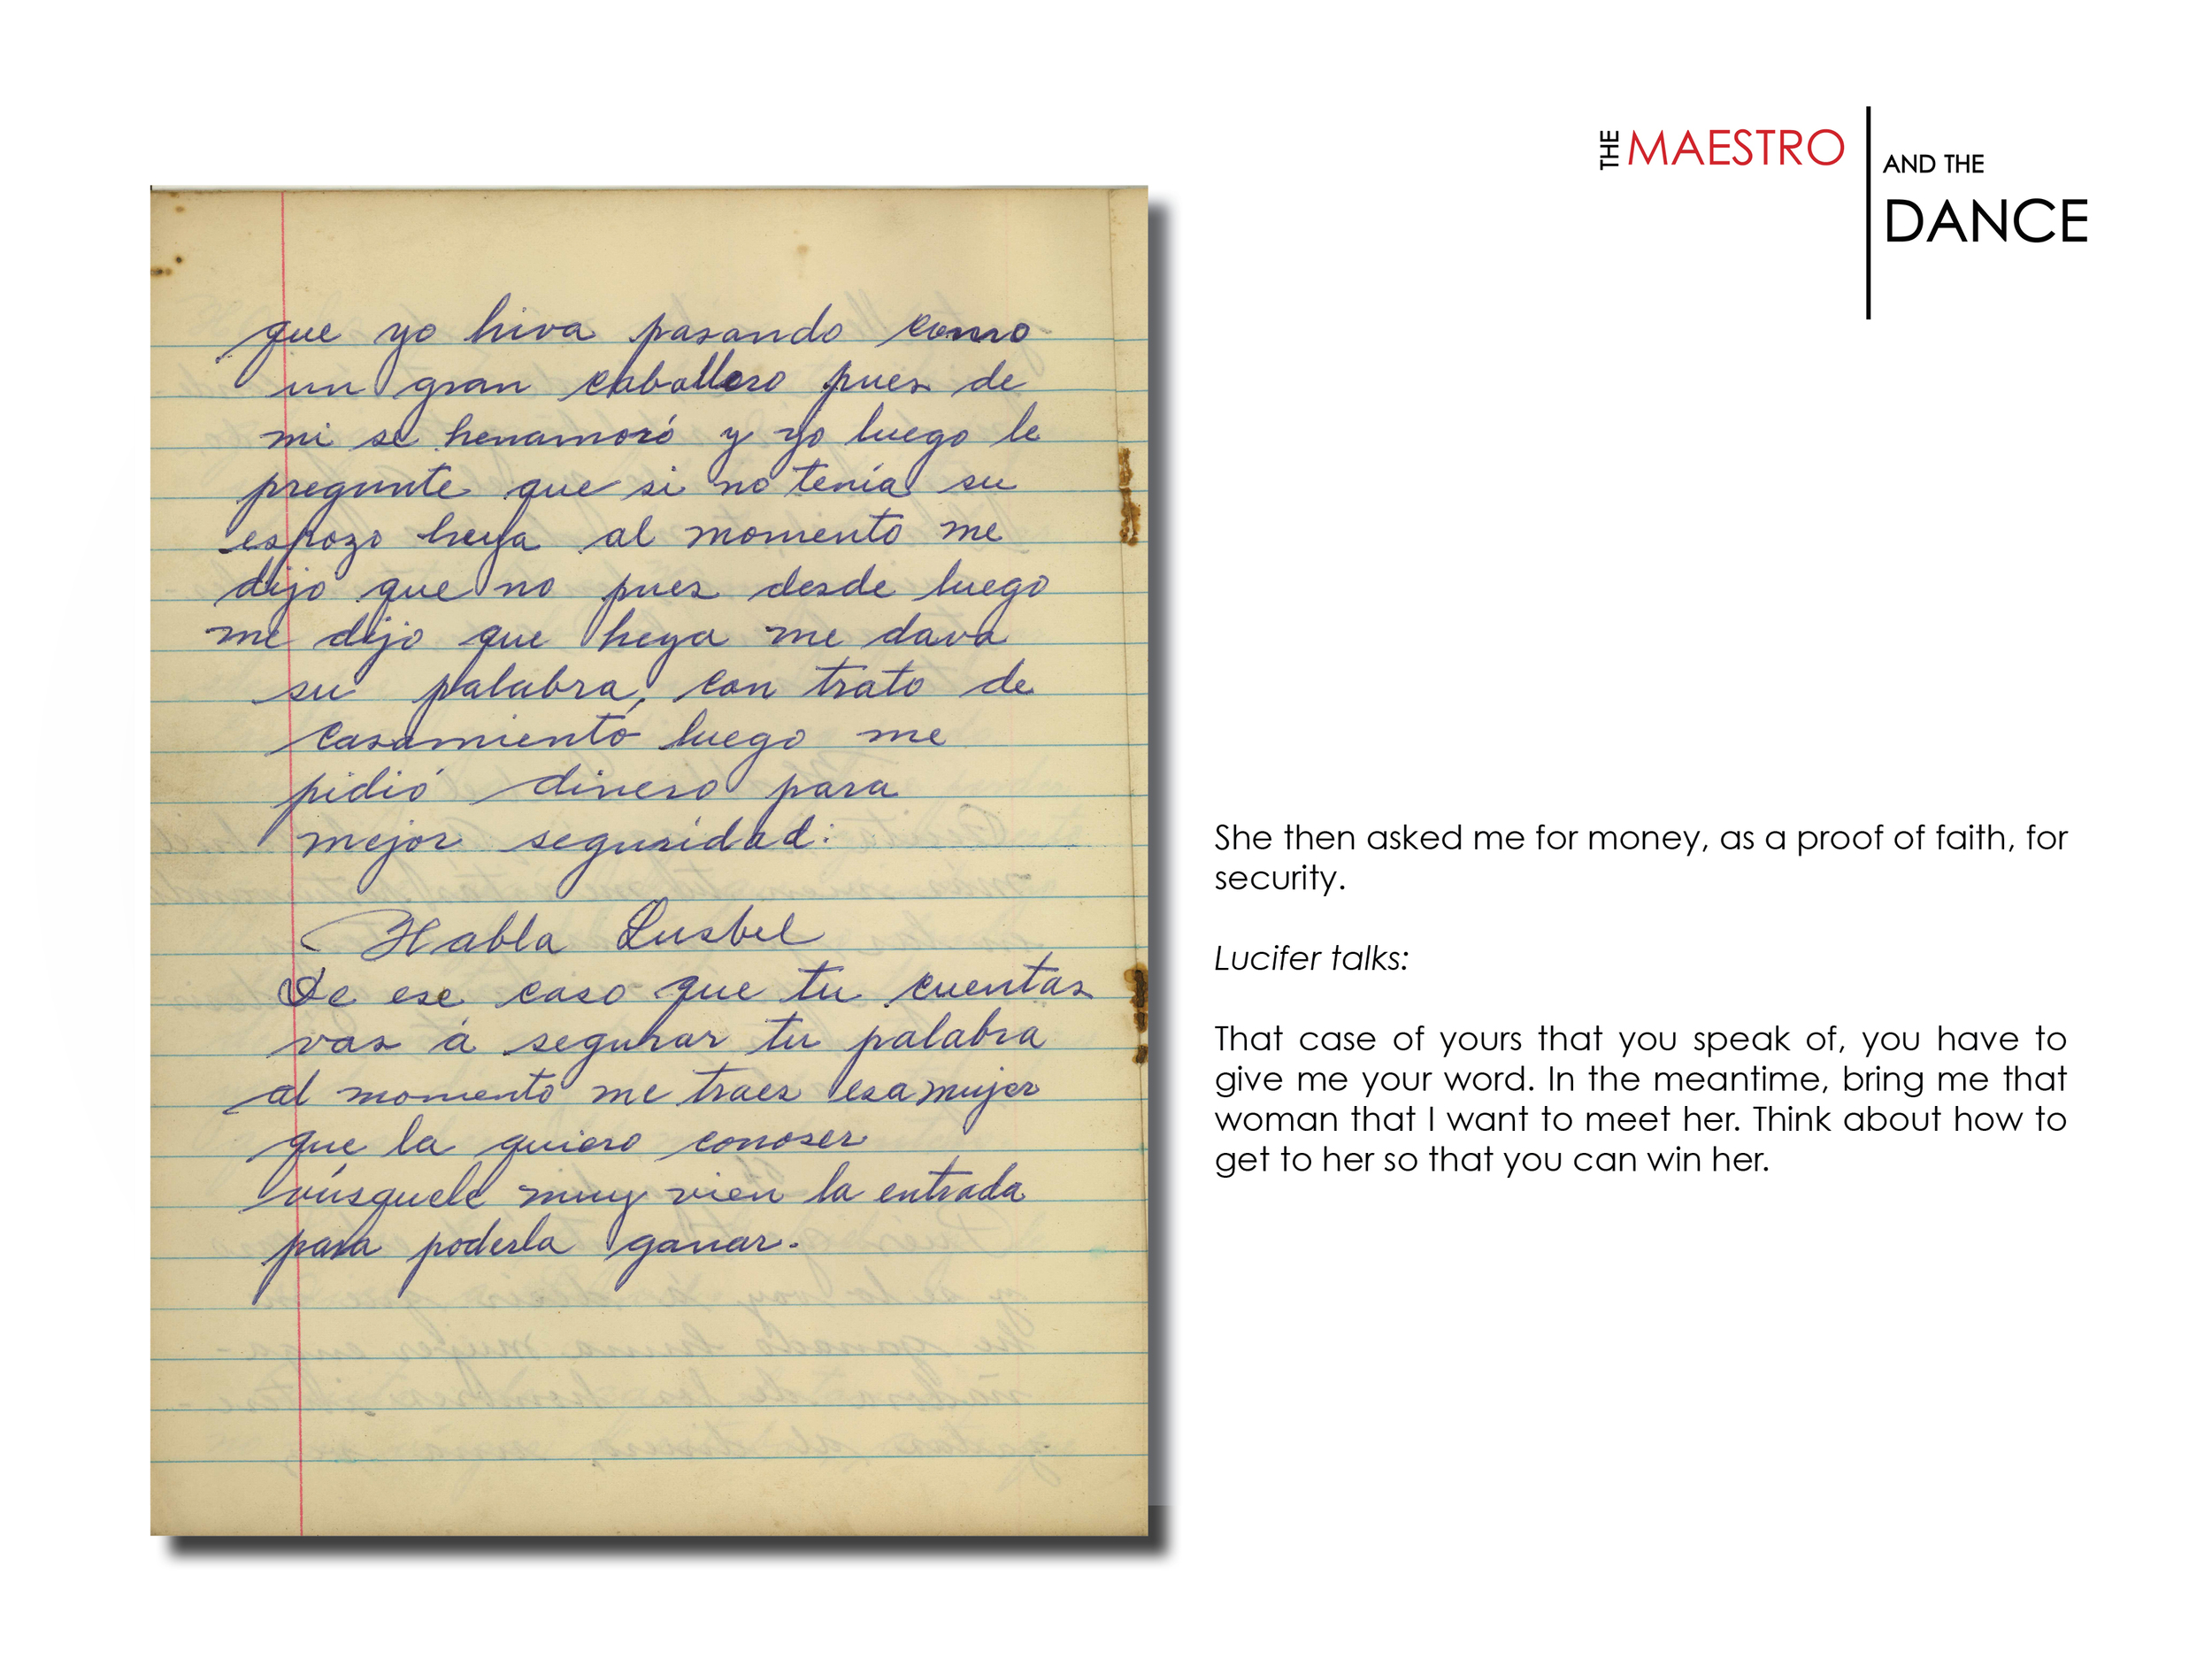 THE MAESTRO AND THE DANCE
que yo hiva pasando como
un gran caballero pues de
mi se henamoró y yo luego le
pregunte que si no tenía su
espozo heya al momento me
dijo que no pues desde luego
me dijo que heya me dava
su palabra, con trato de
casamiento luego me
pidió dinero para
mejor seguridad:
Habla Lusbel
De ese caso que tu cuentas
vas á segurar tu palabra
al momento me traes esa mujer
que la quiero conoser
vúsquele muy vien la entrada
para poderla ganar.
She then asked me for money, as a proof of faith, for
security.
Lucifer talks:
That case of yours that you speak of, you have to
give me your word. In the meantime, bring me that
woman that I want to meet her. Think about how to
get to her so that you can win her.